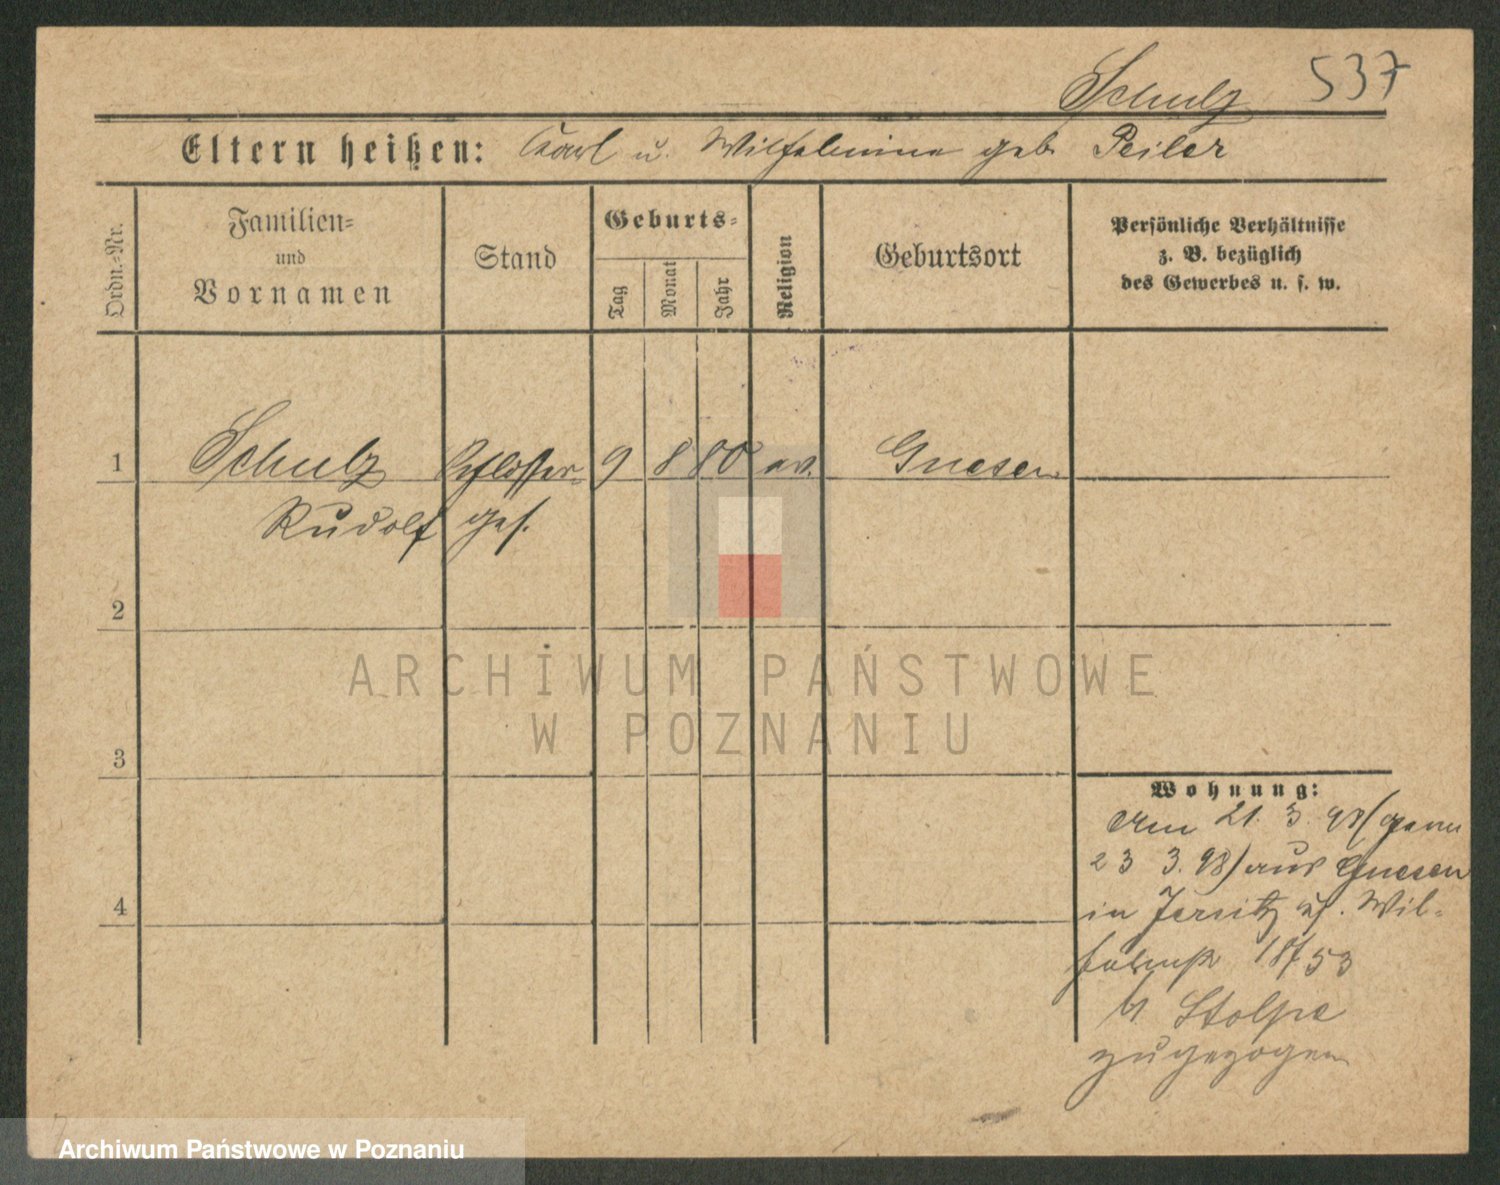 Schulz 537
Eltern heißen: Karl u. Wilhelmine geb Peiler
Ordn.-Nr.
Familien-
und
Vornamen
Stand
Geburts-
Tag
Monat
Jahr
Religion
Geburtsort
Persönliche Verhältnisse
z. B. bezüglich
des Gewerbes u. s. w.
1 Schulz Schlosser- 9 8 80 ev. Gnesen
Rudolf ges.
2
3
4
Wohnung:
Am 21. 3. 98 (gem
23 3. 98) aus Gnesen
in Jersitz Wil-
53
b. Stolpe
zugezogen
ARCHIWUM PAŃSTWOWE
W POZNANIU
Archiwum Państwowe w Poznaniu